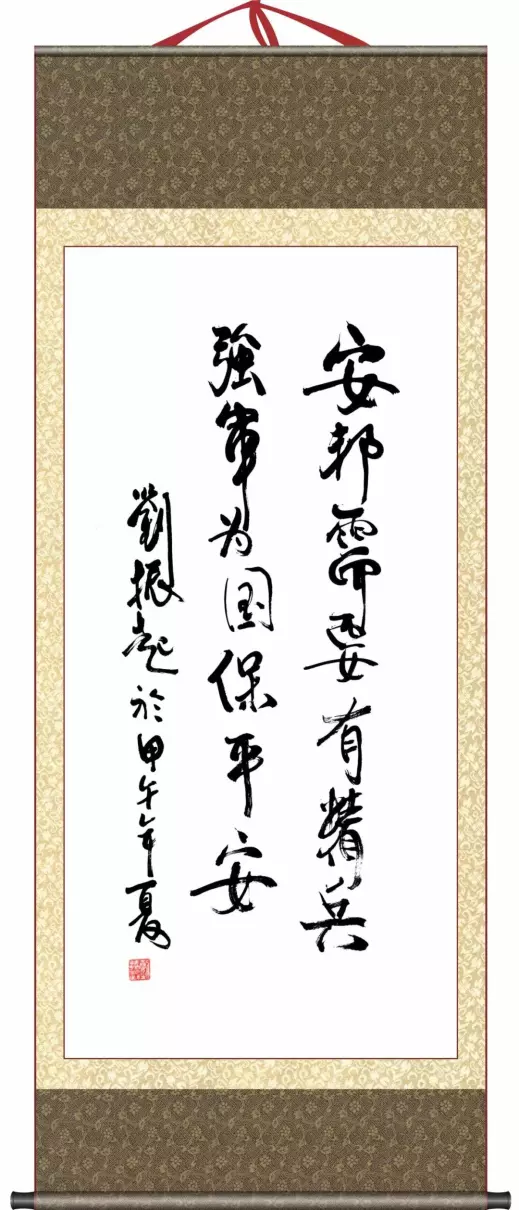 安邦需要有精兵
強军为国保平安
劉振起於甲午年夏